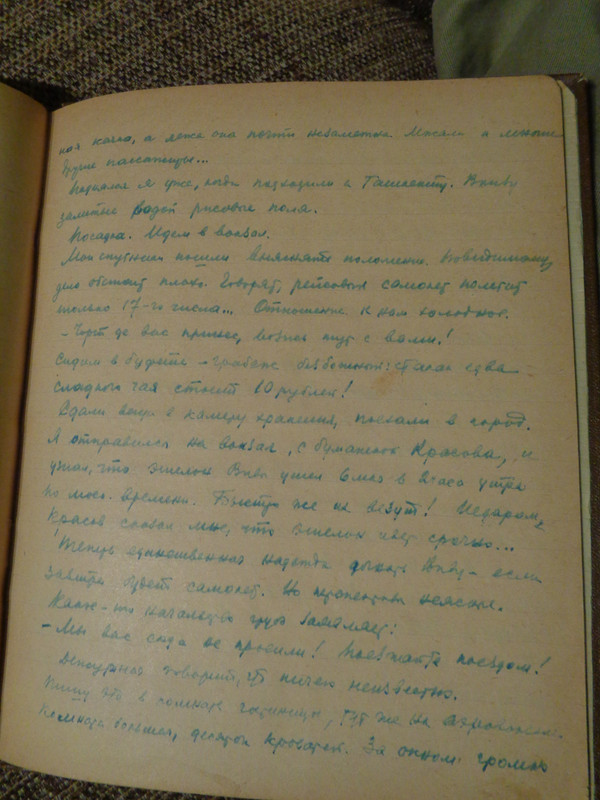 ная качка, а лёжа она почти незаметна. и многие
другие пассажиры...
Поднялся я уже, когда подходили к Ташкенту. Внизу
залитые водой рисовые поля.
Посадка. Идем в вокзал.
Мои спутники пошли выяснять положение. Повидимому,
дело обстоит плохо. Говорят, рейсовый самолет полетит
только 17-го числа... Отношение к нам холодное.
- Чорт де вас принес, возись тут с вами!
Сидим в буфете - грабеж безбожный: стакан едва
сладкого чая стоит 10 рублей!
Сдали вещи в камеру хранения, поехали в город.
Я отправился на вокзал, с бумажкой Красова, и
узнал, что эшелон ушел в 2 часа утра
по моск. времени. Быстро же их везут! Недаром,
Красов сказал мне, что эшелон идет срочно...
Теперь единственная надежда догнать - если
завтра будет самолет. Но перспективы неясные.
Какое-то начальство грубо заявляет:
- Мы вас сюда не просили! Поезжайте поездом!
Дежурная говорит, что ничего неизвестно.
Пишу это в комнате гостиницы, тут же на аэровокзале.
Комната большая, десяток кроватей. За окном громко